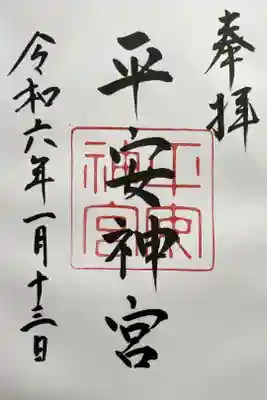 奉拝
平安神宮
平安神宮
令和六年一月十三日